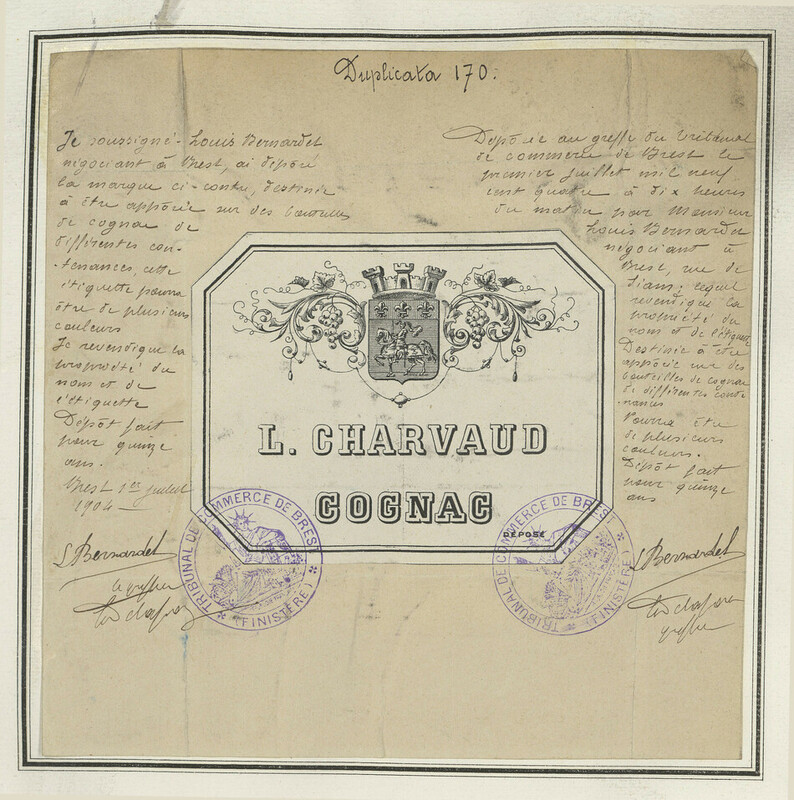 Duplicata 170.
Je soussigné Louis Bernardet
négociant à Brest, ai déposé
la marque ci-contre, destinée
à être apposée sur des bouteilles
de cognac de
différentes con-
-tenances, cette
étiquette pourra
être de plusieurs
couleurs
Je revendique la
propriété du
nom et de
l'étiquette
Dépôt fait
pour quinze
ans.
Brest 1er juillet
1904
L Bernardet
Le greffier
Déposée au greffe du tribunal
de commerce de Brest le
premier juillet mil neuf
cent quatre à dix heures
du matin par Monsieur
Louis Bernardet
négociant à
Brest, rue de
Siam; lequel
revendique la
propriété du
nom et de l'étiquette
Destinée à être
apposée sur des
bouteilles de cognac
de différentes conte
nances
Pourra être
de plusieurs
couleurs.
Dépôt fait
pour quinze
ans
L Bernardet
greffier
L. CHARVAUD
COGNAC
DÉPOSÉ
TRIBUNAL DE COMMERCE DE BREST
(FINISTÈRE)
TRIBUNAL DE COMMERCE DE BREST
(FINISTÈRE)